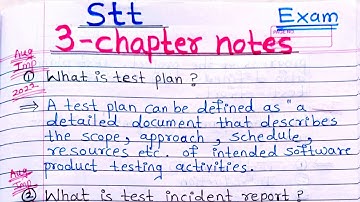 Stt
Exam
3-chapter notes
Aug
Imp
2022
① What is test plan ?
⇒ A test plan can be defined as "a
detailed document that describes
the scope, approach, schedule,
resources etc. of intended software
product testing activities.
Aug
Imp
② What is test incident report ?